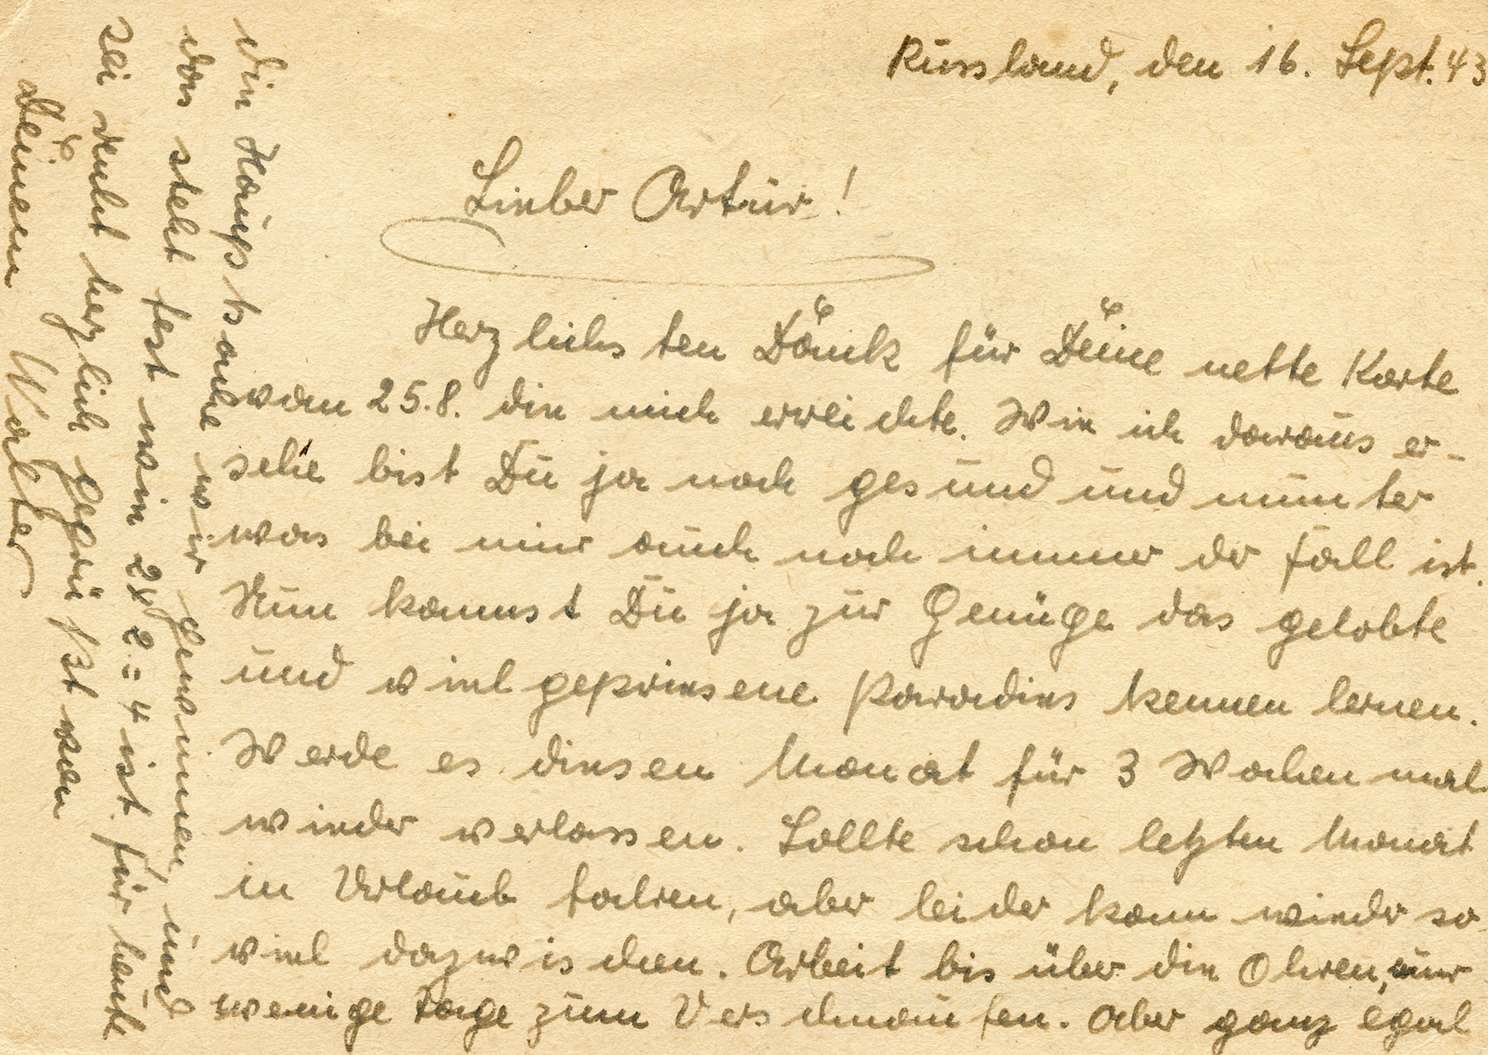 Russland, den 16. Sept. 43
Lieber Artur!
Herzlichsten Dank für Deine nette Karte
vom 25.8. die mich erreichte. Wie ich daraus er-
sehe bist Du ja noch gesund und munter
was bei mir auch noch immer der Fall ist.
Nun kannst Du ja zur Genüge das gelobte
und viel gepriesene Paradies kennen lernen.
Werde es diesen Monat für 3 Wochen mal
wieder verlassen. Sollte schon letzten Monat
in Urlaub fahren, aber leider kam wieder so
viel dazwischen. Arbeit bis über die Ohren, nur
wenige Tage zum Verschnaufen. Aber ganz egal
die Hauptsache wir gewinnen, und
das steht fest wie 2x2=4 ist. Für heute
sei recht herzlich gegrüßt von
Deinem Walter